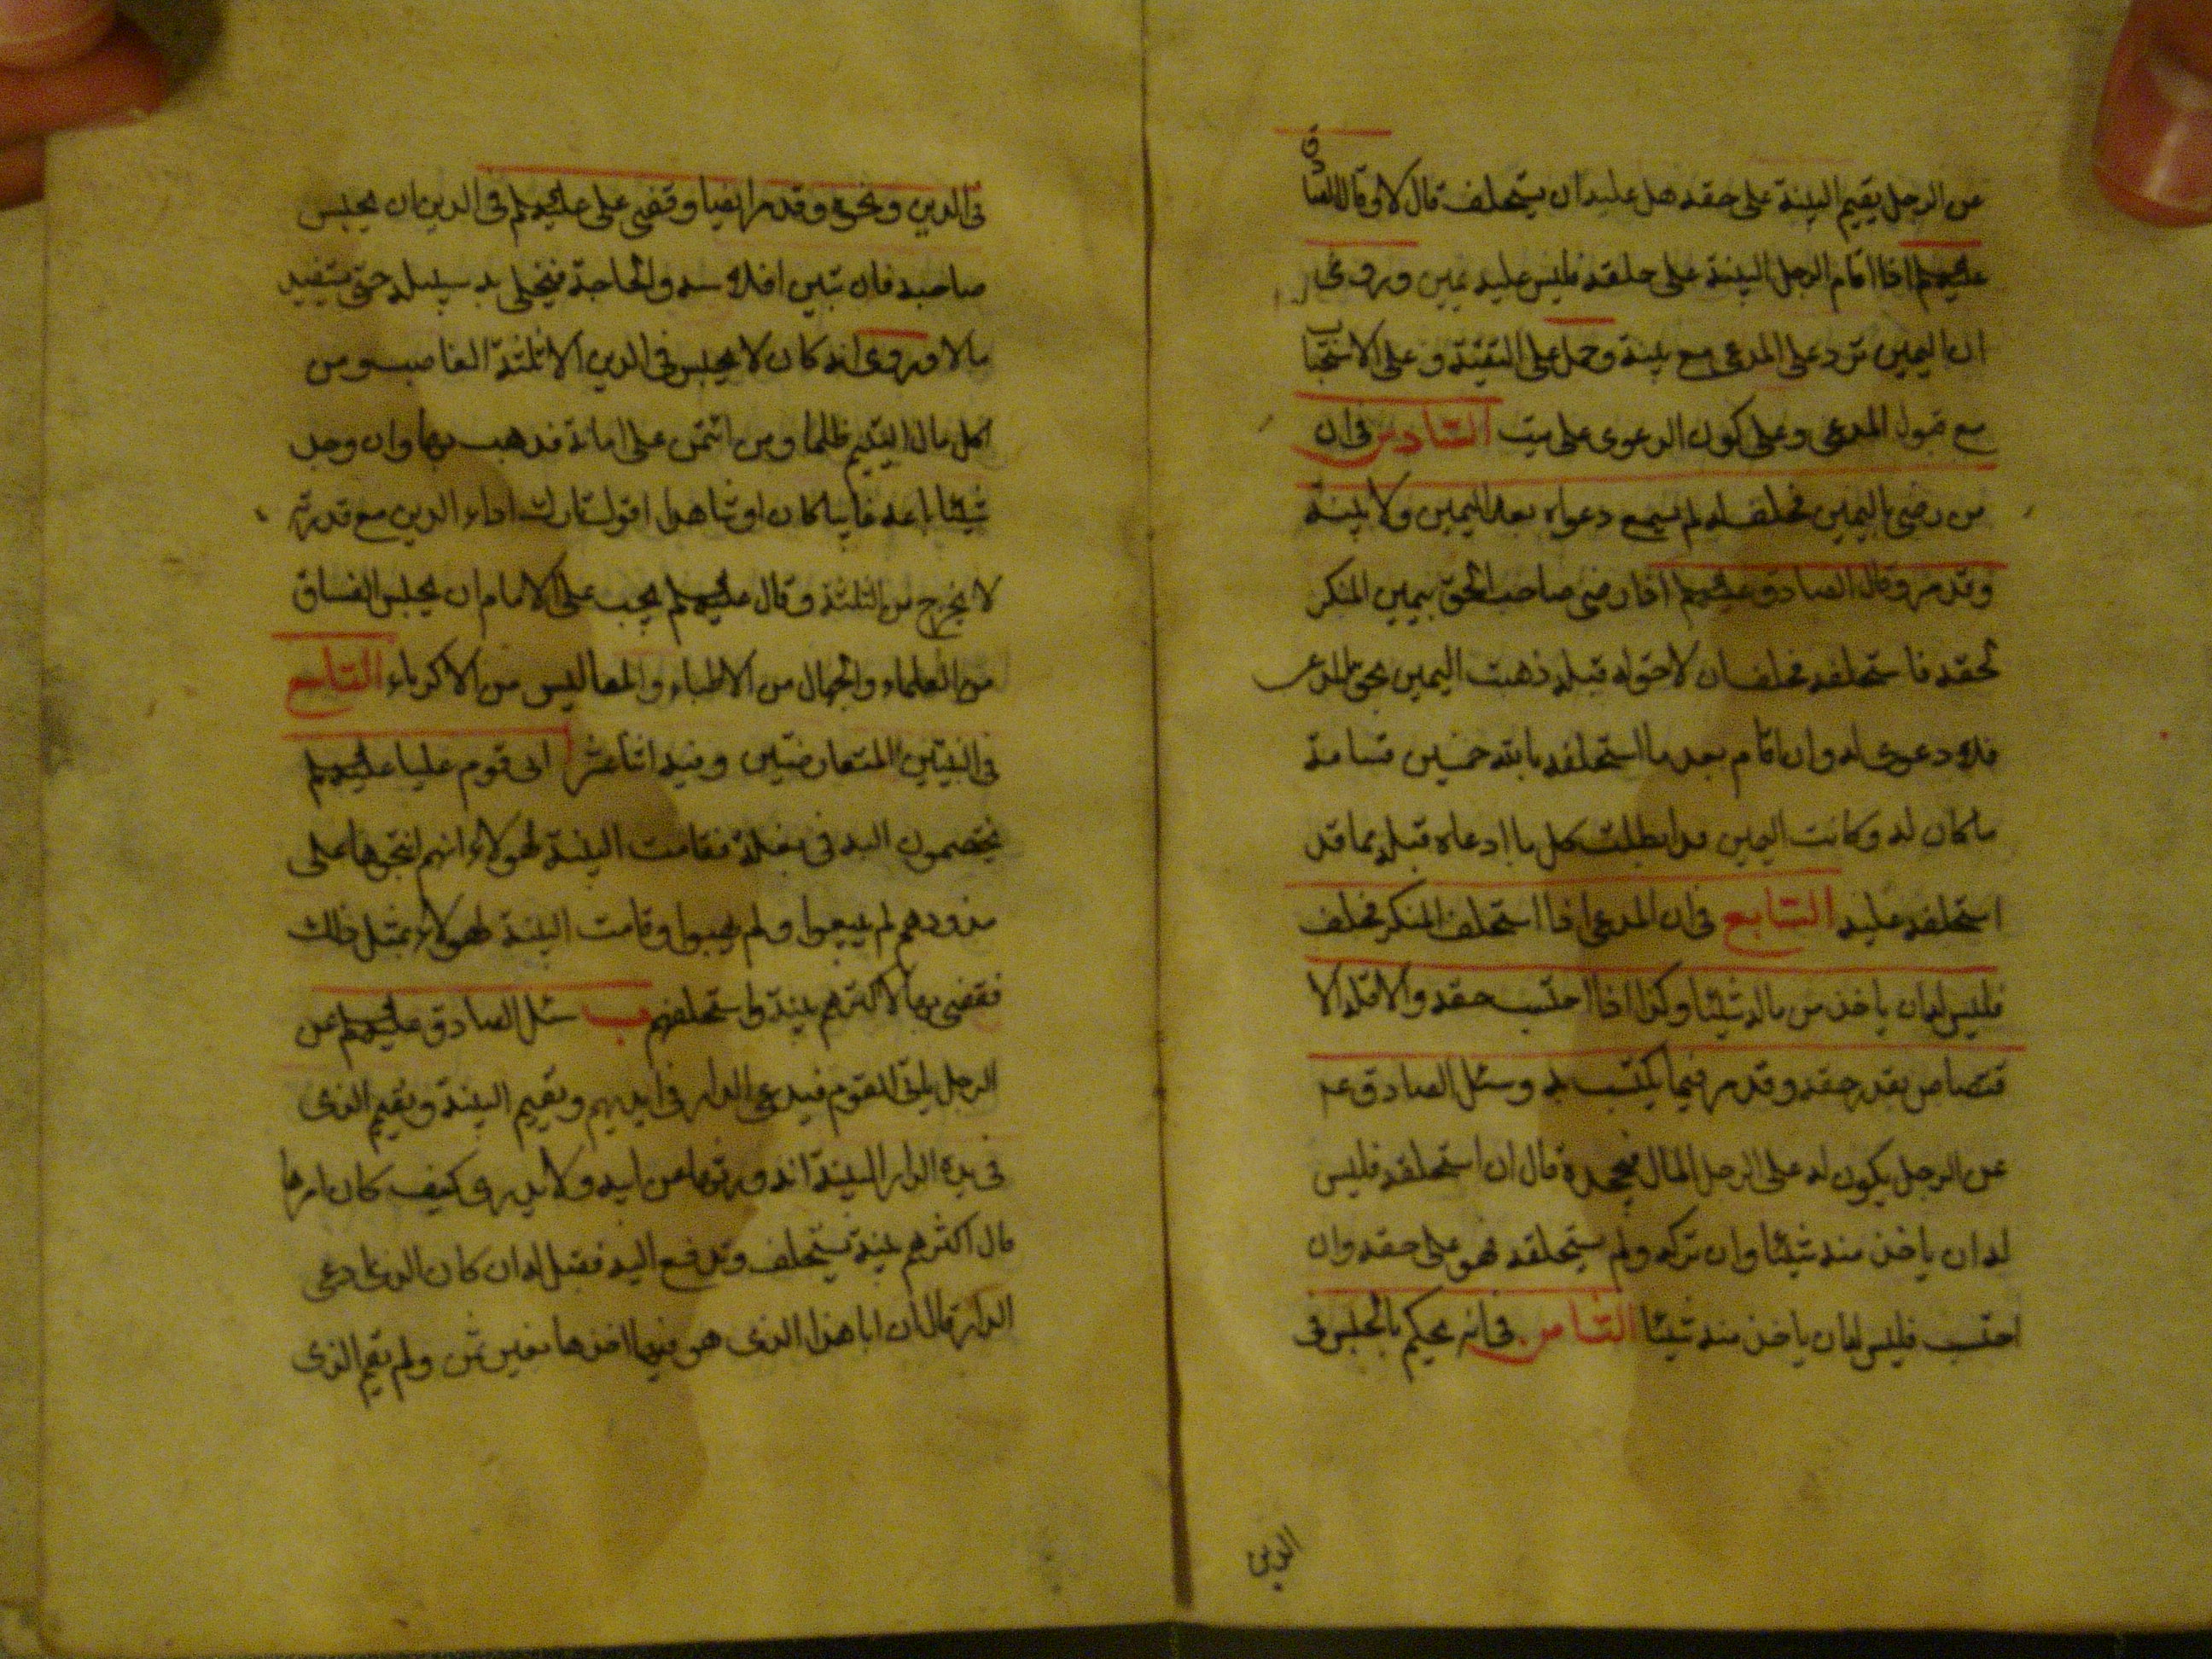 عن الرجل يقيم البينة على حقه هل عليه ان يستحلف قال لا وقال الصادق
عليه السلام اذا اقام الرجل البينة على حقه فليس عليه يمين وروى
ان اليمين ترد على المدعى مع بينة وحمل على التقية وعلى الاستحباب
مع قبول المدعى وعلى كون الدعوى على ميت السادس فى ان
من رضى باليمين فحلف له لم تسمع دعواه بعد اليمين ولا بينة
وقد مر وقال الصادق عليه السلام اذا رضى صاحب الحق بيمين المنكر
لحقه فاستحلفه فحلف ان لا حق له قبله ذهبت اليمين بحق المدعى
فلا دعوى له وان اقام بعد ما استحلفه بالله خمسين قسامة
ما كان له وكانت اليمين قد ابطلت كل ما ادعاه قبله مما قد
استحلفه عليه السابع فى ان المدعى اذا استحلف المنكر فحلف
فليس له ان ياخذ من ماله شيئا وكذا اذا احتسب حقه والا فله الا
قتصاص بقدر حقه وقد مر فيما يكتسب به وسئل الصادق ع
عن الرجل يكون له على الرجل المال فيجحده قال ان استحلفه فليس
له ان ياخذ منه شيئا وان تركه ولم يستحلفه فهو على حقه وان
احتسب فليس له ان ياخذ منه شيئا الثامن فى انه يحكم بالحبس فى
الدين
فى الدين ونحوه وقد مر ايضا وقضى على عليه السلام فى الدين ان يحبس
صاحبه فان تبين افلاسه والحاجة فيخلى سبيله حتى يستفيد
مالا وروى انه كان لا يحبس فى الدين الا ثلثة الغاصب ومن
اكل مال اليتيم ظلما ومن ائتمن على امانة فذهب بها وان وجد
شيئا باعه غايبا كان او شاهدا اقول تارك اداء الدين مع قدرته
لا يخرج من الثلثة وقال عليه السلام يجب على الامام ان يحبس الفساق
من العلماء والجهال من الاطباء والمفاليس من الاكرياء التاسع
فى البينتين المتعارضتين وفيه اثنا عشر ا اتى قوم عليا عليه السلام
يختصمون اليه فى بغلة فقامت البينة لهولاء انهم انتجوها على
مذودهم لم يبيعوا ولم يهبوا وقامت البينة لهولاء بمثل ذلك
فقضى بها لاكثرهم بينة واستحلفهم ب سئل الصادق عليه السلام عن
الرجل ياتى القوم فيدعى الدار فى ايديهم ويقيم البينة ويقيم الذى
فى يده الدار البينة انه ورثها عن ابيه ولا يدرى كيف كان امرها
قال اكثرهم بينة يستحلف وتدفع اليه فقيل له ان كان الذى ادعى
الدار قال ان ابا هذا الذى هو فيها اخذها بغير ثمن ولم يقم الذى